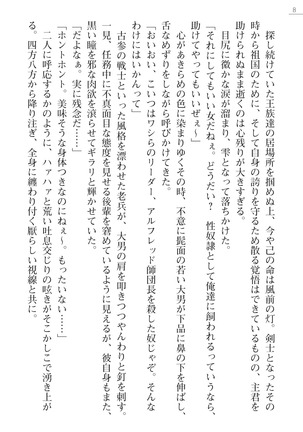 8
探し続けていた王族達の居場所を掴めぬ上、今や己の命は風前の灯。剣士となったその
時から祖国のために、そして自身の誇りを守るため散る覚悟はできているものの、主君を
助けられぬまま逝くのは心残りが大きすぎる。
目尻に微かな涙が溜まり、雫となって落ちかけた。
「それにしてもいい女だねぇ。どうだい？　性奴隷として俺達に飼われるっていうなら、
助けてやってもいいぜぇ～」
心があきらめの色に染まりゆくその時、不意に髭面の若い大男が下品に鼻の下を伸ばし、
舌なめずりをしながら呼びかけてきた。
「おいおい、こいつはワシらのリーダー　アルフレッド師団長を殺した奴じゃぞ。そんな
わけにはいかんって」
古参の戦士といった風格を漂わせた老兵が、大男の肩を叩きつつやんわりと釘を刺す。
一見、任務中に不真面目な態度を見せる後輩を窘めているように見えるが、彼自身もまた、
黒い瞳を邪な肉欲を滾らせてギラリと輝かせていた。
「だよなぁ。実に残念だ……」
「ホントホント。美味そうな身体つきなのにね～。もったいない……」
二人に呼応するかのように、ハァハァと荒い吐息交じりの呟きがそこかしこで湧き上が
る。四方八方から降り注ぎ、全身に纏わり付く厭らしい視線と共に。